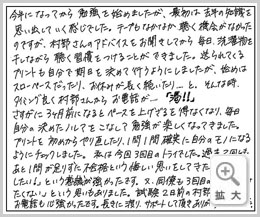 今年になってから勉強を始めましたが、最初は去年の知識を
思い出していく感じでした。テープもなかなか聴く機会がなかった
のですが、村野さんのアドバイスをお聞きしてから毎日、洗濯物を
干しながら聴く習慣をつけることができました。送られてくる
プリントも自分で期日を決めて行うようにしましたが、始めは
スローペースだったり、お休みが長く続いたり…と、そんな時、
タイミング良く村野さんからお電話が…「渇!!」
さすがに3ヶ月前になるとペースを上げざるを得なくなり、毎日
自分の決めたノルマをこなして勉強が楽しくなってきました。
プリントを初めからやり直し、1問1問確実に自分のモノになる
ようにチェックしました。私は今回3回目のトライでした。過去2回
あと1問が足りずに不合格という悔しい思いをしてきた
したい」という意識が強かったです。又、同僚も3回目の
たくない」という思いもありました。試験2日前の村野
お電話も心強かったです。長きに渡りサポートして頂きあり
拡大